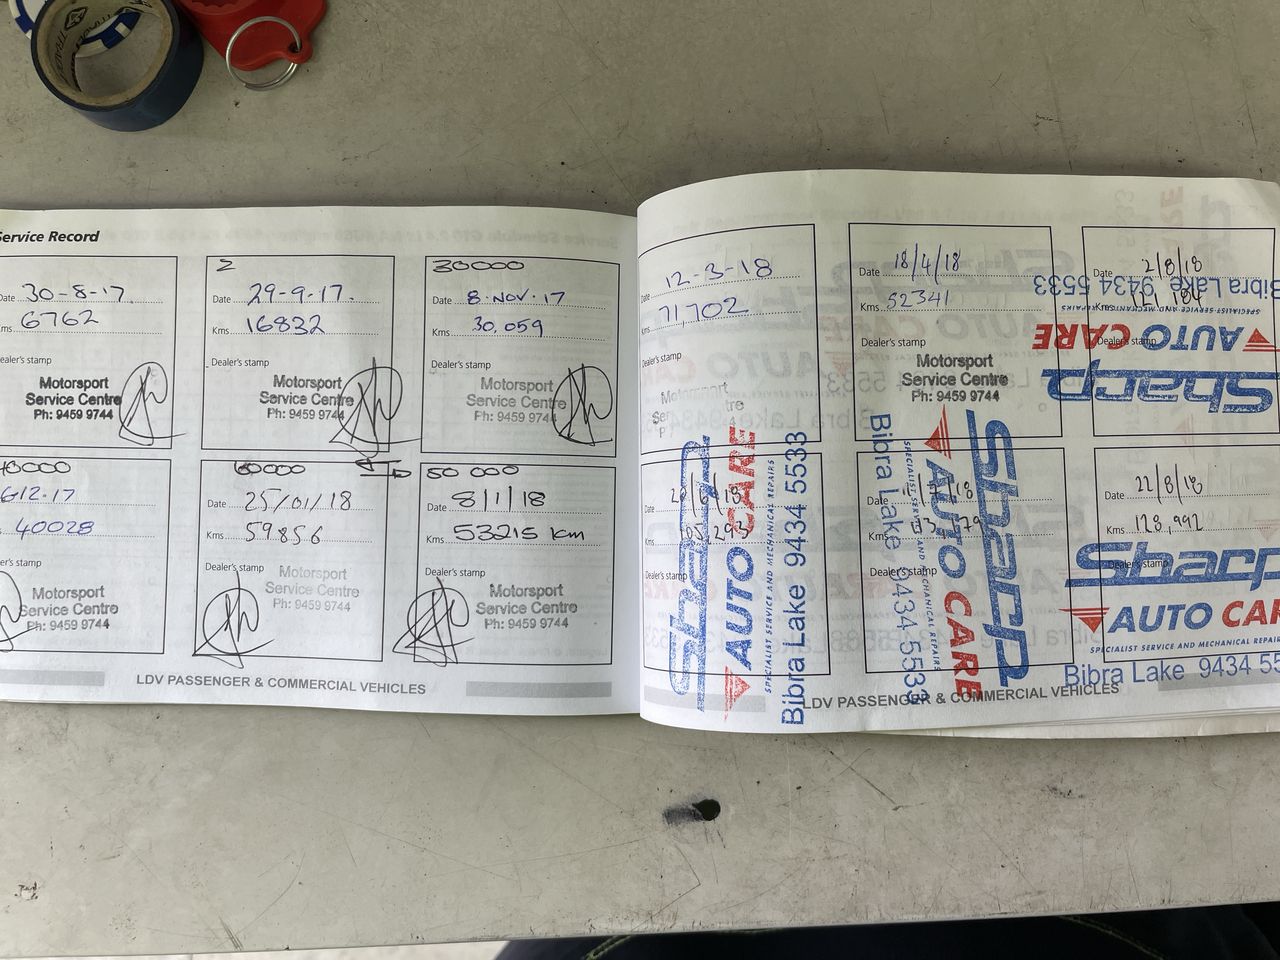 Service Record
Date 30-8-17.
Kms 6762
Dealer's stamp
Motorsport
Service Centre
Ph: 9459 9744
2
Date 29-9-17.
Kms 16832
Dealer's stamp
Motorsport
Service Centre
Ph: 9459 9744
30000
Date 8.NOV.17
Kms 30,059
Dealer's stamp
Motorsport
Service Centre
Ph: 9459 9744
40000
612.17
40028
Dealer's stamp
Motorsport
Service Centre
Ph: 9459 9744
60000
Date 25/01/18
59856
Dealer's stamp
Motorsport
Service Centre
Ph: 9459 9744
50 000
Date 8/1/18
Kms 53215 km
Dealer's stamp
Motorsport
Service Centre
Ph: 9459 9744
LDV PASSENGER & COMMERCIAL VEHICLES
Date 12-3-18
Kms 71,702
Dealer's stamp
Date 18/4/18
Kms 52341
Dealer's stamp
Motorsport
Service Centre
Ph: 9459 9744
Date 2/8/18
Kms
Dealer's stamp
Sharp
AUTO CARE
SPECIALIST SERVICE AND MECHANICAL REPAIRS
Bibra Lake 9434 5533
Date
Kms 105,293
Dealer's stamp
Sharp
AUTO CARE
SPECIALIST SERVICE AND MECHANICAL REPAIRS
Bibra Lake 9434 5533
Date
Kms
Dealer's stamp
Sharp
AUTO CARE
SPECIALIST SERVICE AND MECHANICAL REPAIRS
Bibra Lake 9434 5533
Date 22/8/18
Kms 128,992
Dealer's stamp
Sharp
AUTO CAR
SPECIALIST SERVICE AND MECHANICAL REPAIR
Bibra Lake 9434 55
LDV PASSENGER & COMMERCIAL VEHICLES